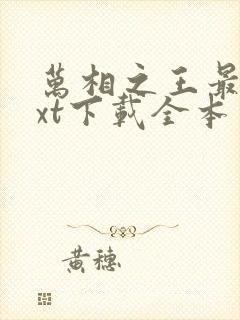 萬相之王最
xt下載全本
黃穗